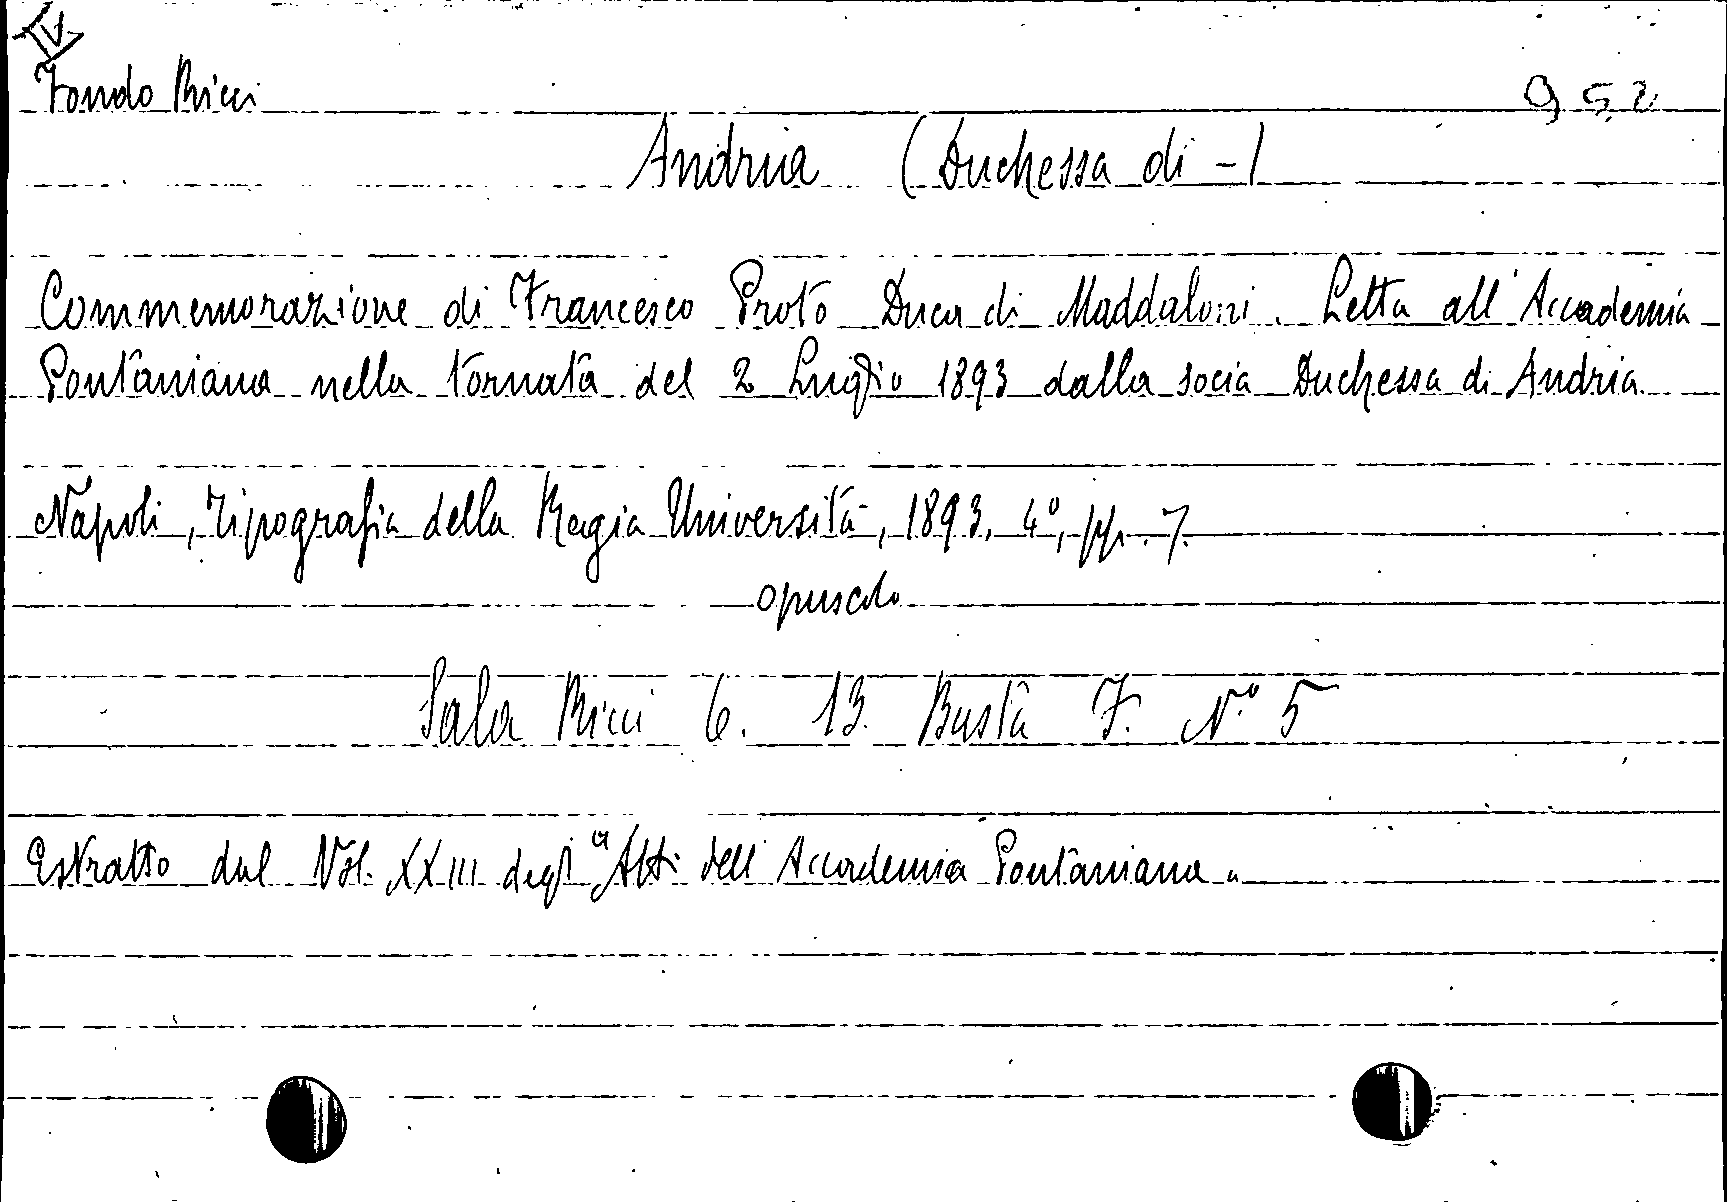 IV
Fondo Ricci 952
Andria (Duchessa di -)
Commemorazione di Francesco Proto Duca di Maddaloni. Letta all'Accademia
Pontaniana nella tornata del 2 Luglio 1893 dalla socia Duchessa di Andria.
Napoli, Tipografia della Regia Università, 1893, 4°, pp. 7.
opuscolo
Sala Ricci 6. 13. Busta F. N.° 5
Estratto dal Vol. XXIII degli "Atti dell'Accademia Pontaniana"